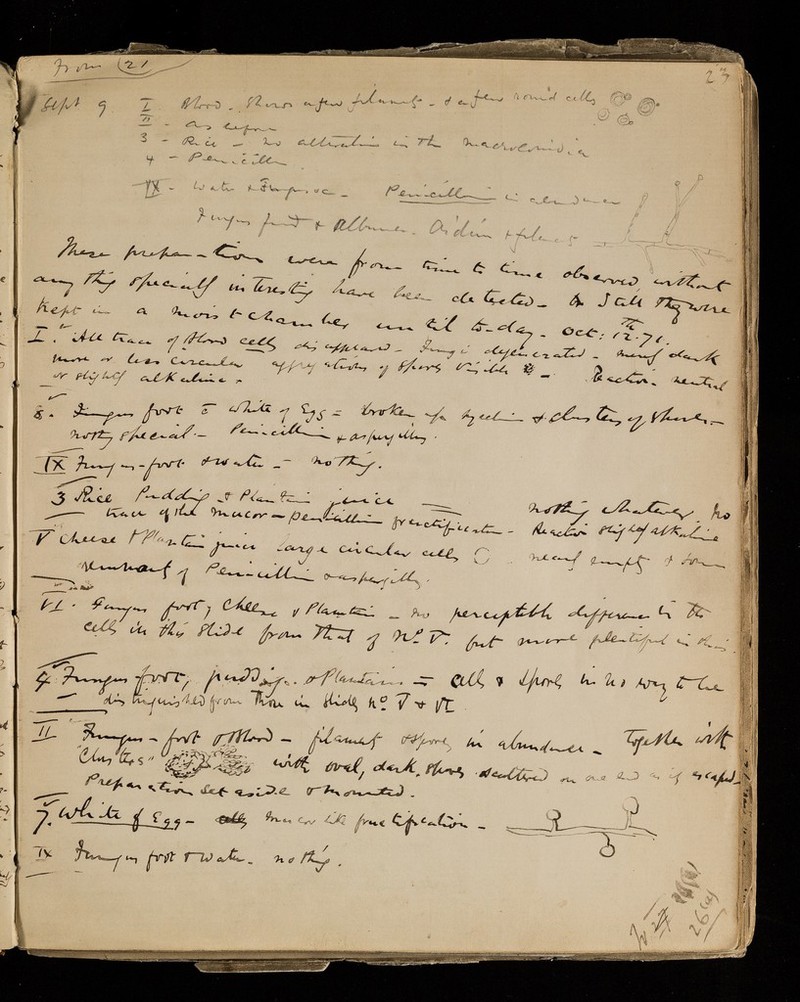 From (21
23
Sept 9 I Blood - Shows a few filaments - & a few round cells
II - as before
3 - Rice - no alteration in the macroconidia
4 - Penicillium
IX - Water & Fungus - Penicillium in abundance
Fungus foot & Albumen. Oidium & filaments
These preparations were from time to time observed, without
any thing specially interesting have been detected - & Still they were
kept in a moist chamber until to-day - Oct: 12th 71.
I. All trace of blood cells disappeared - Fungi degenerated - many dark
more or less circular aggregations of spores visible - Reaction neutral
or slightly alkaline.
8. Fungus foot c white of Egg = broken up mycelium & clusters of spores -
nothing special - Penicillium & aspergillus.
IX Fungus-foot & water - nothing.
3 Rice Pudding & Plantain juice - nothing whatever, no
trace of the mucor - penicillium fructification - Reaction slightly alkaline
V Cheese & Plantain juice large circular cells nearly empty & some
remnant of Penicillium & aspergillus.
VI. Fungus foot, Cheese & Plantain - no perceptible difference in the
cells in this slide from that of No. V. but more plentiful in this.
4 Fungus foot, pudding & Plantain = Cells & spores in no way to be
distinguished from those in slides No. V & VI
II Fungus-foot & Blood - filaments & spores in abundance - together with
"Clusters" with oval, dark, spores scattered on one end as if escaped -
Preparation set aside & mounted.
7. White of Egg - mucor like fructification -
IX Fungus foot & water - nothing.
26